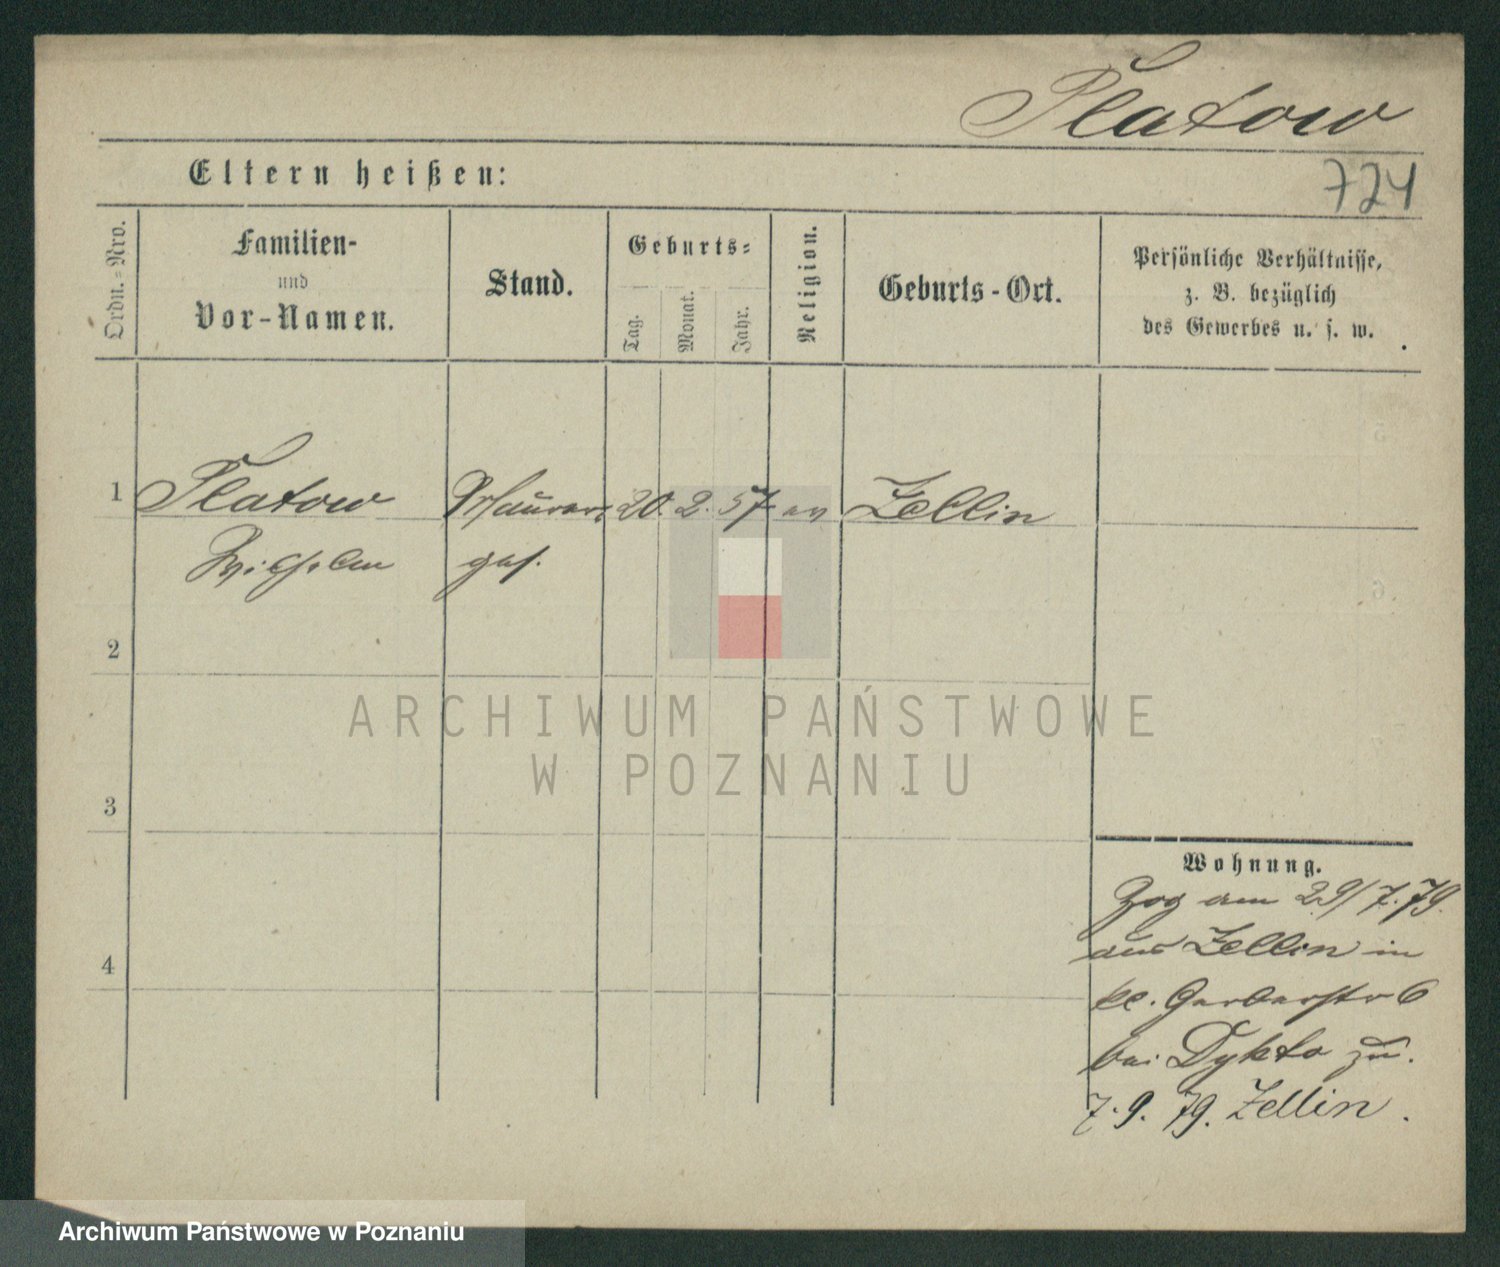 Platow
Eltern heißen:
724
Ordn.-Nro.
Familien-
und
Vor-Namen.
Stand.
Geburts-
Tag.
Monat.
Jahr.
Religion.
Geburts-Ort.
Persönliche Verhältnisse,
z. B. bezüglich
des Gewerbes u. s. w.
1 Platow Maurer 20. 2. 57 ev Zellin
Wilhelm ges.
2
3
4
Wohnung.
Zog am 29/7.79.
aus Zellin in
kl. Gerberstr 6
bei Dykto zu.
7.9.79. Zellin.
ARCHIWUM PAŃSTWOWE
W POZNANIU
Archiwum Państwowe w Poznaniu